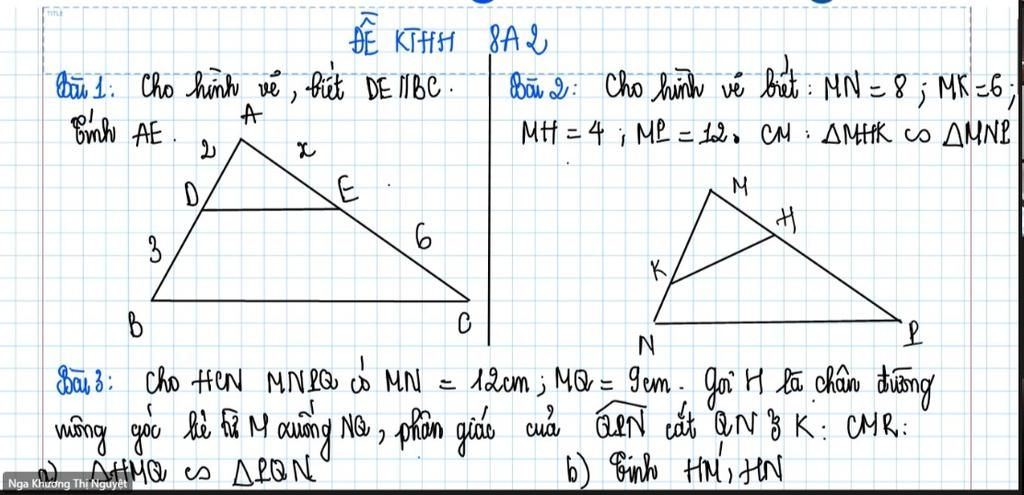 TITLE
ĐỀ KTHH 8A2
Bài 1: Cho hình vẽ, biết DE // BC.
Tính AE.
A
2
x
D
E
3
6
B
C
Bài 2: Cho hình vẽ biết: MN = 8; MK = 6;
MH = 4; MP = 12. CM: ΔMHK ∽ ΔMNP
M
H
K
N
P
Bài 3: Cho HCN MNPQ có MN = 12cm; MQ = 9cm. Gọi H là chân đường
vuông góc kẻ từ M xuống NQ, phân giác của QPN cắt QN ở K. CMR:
a) ΔHMQ ∽ ΔPQN b) Tính HM, HN
Nga Khương Thị Nguyệt